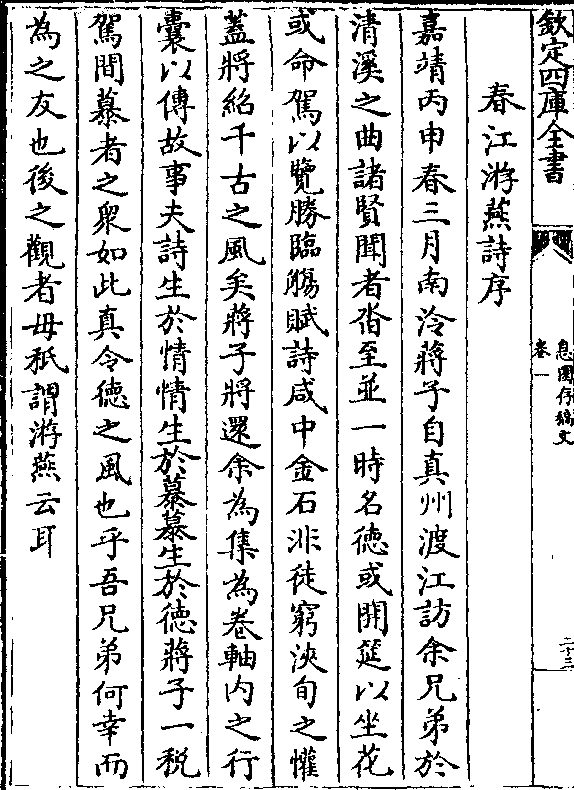 欽定四庫全書
息園存稿文
卷一
二十三
春江游燕詩序
嘉靖丙申春三月南泠蔣子自真州渡江訪余兄弟於
清溪之曲諸賢聞者沓至並一時名德或開筵以坐花
或命駕以覽勝臨觴賦詩咸中金石非徒窮浹旬之懽
蓋將紹千古之風矣蔣子將還余為集為卷軸内之行
囊以傳故事夫詩生於情情生於慕慕生於德蔣子一税
駕間慕者之衆如此真令德之風也乎吾兄弟何幸而
為之友也後之觀者毋秖謂游燕云耳